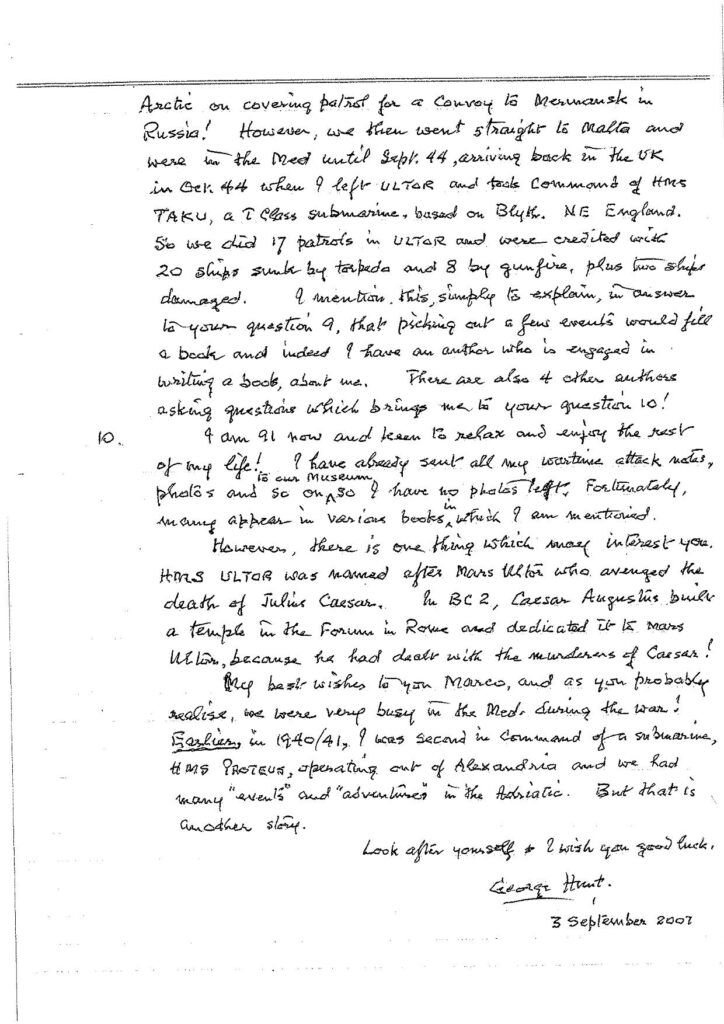 Arctic on covering patrol for a Convoy to Mermansk in
Russia! However, we then went straight to Malta and
were in the Med until Sept. 44, arriving back in the UK
in Oct. 44 when I left ULTOR and took Command of HMS
TAKU, a T Class submarine, based on Blyth. NE England.
So we did 17 patrols in ULTOR and were credited with
20 ships sunk by torpedo and 8 by gunfire, plus two ships
damaged. I mention this, simply to explain, in answer
to your question 9, that picking out a few events would fill
a book and indeed I have an author who is engaged in
writing a book, about me. There are also 4 other authors
asking questions which brings me to your question 10!
10. I am 91 now and keen to relax and enjoy the rest
of my life! I have already sent all my wartime attack notes,
to our Museum
photos and so on, so I have no photos left. Fortunately,
many appear in various books in which I am mentioned.
However, there is one thing which may interest you.
HMS ULTOR was named after Mars Ultor who avenged the
death of Julius Caesar. In BC 2, Caesar Augustus built
a temple in the Forum in Rome and dedicated it to Mars
Ultor, because he had dealt with the murderers of Caesar!
My best wishes to you Marco, and as you probably
realise, we were very busy in the Med. during the war!
Earlier, in 1940/41, I was second in command of a submarine,
HMS PROTEUS, operating out of Alexandria and we had
many "events" and "adventures" in the Adriatic. But that is
another story.
Look after yourself & I wish you good luck.
George Hunt.
3 September 2007